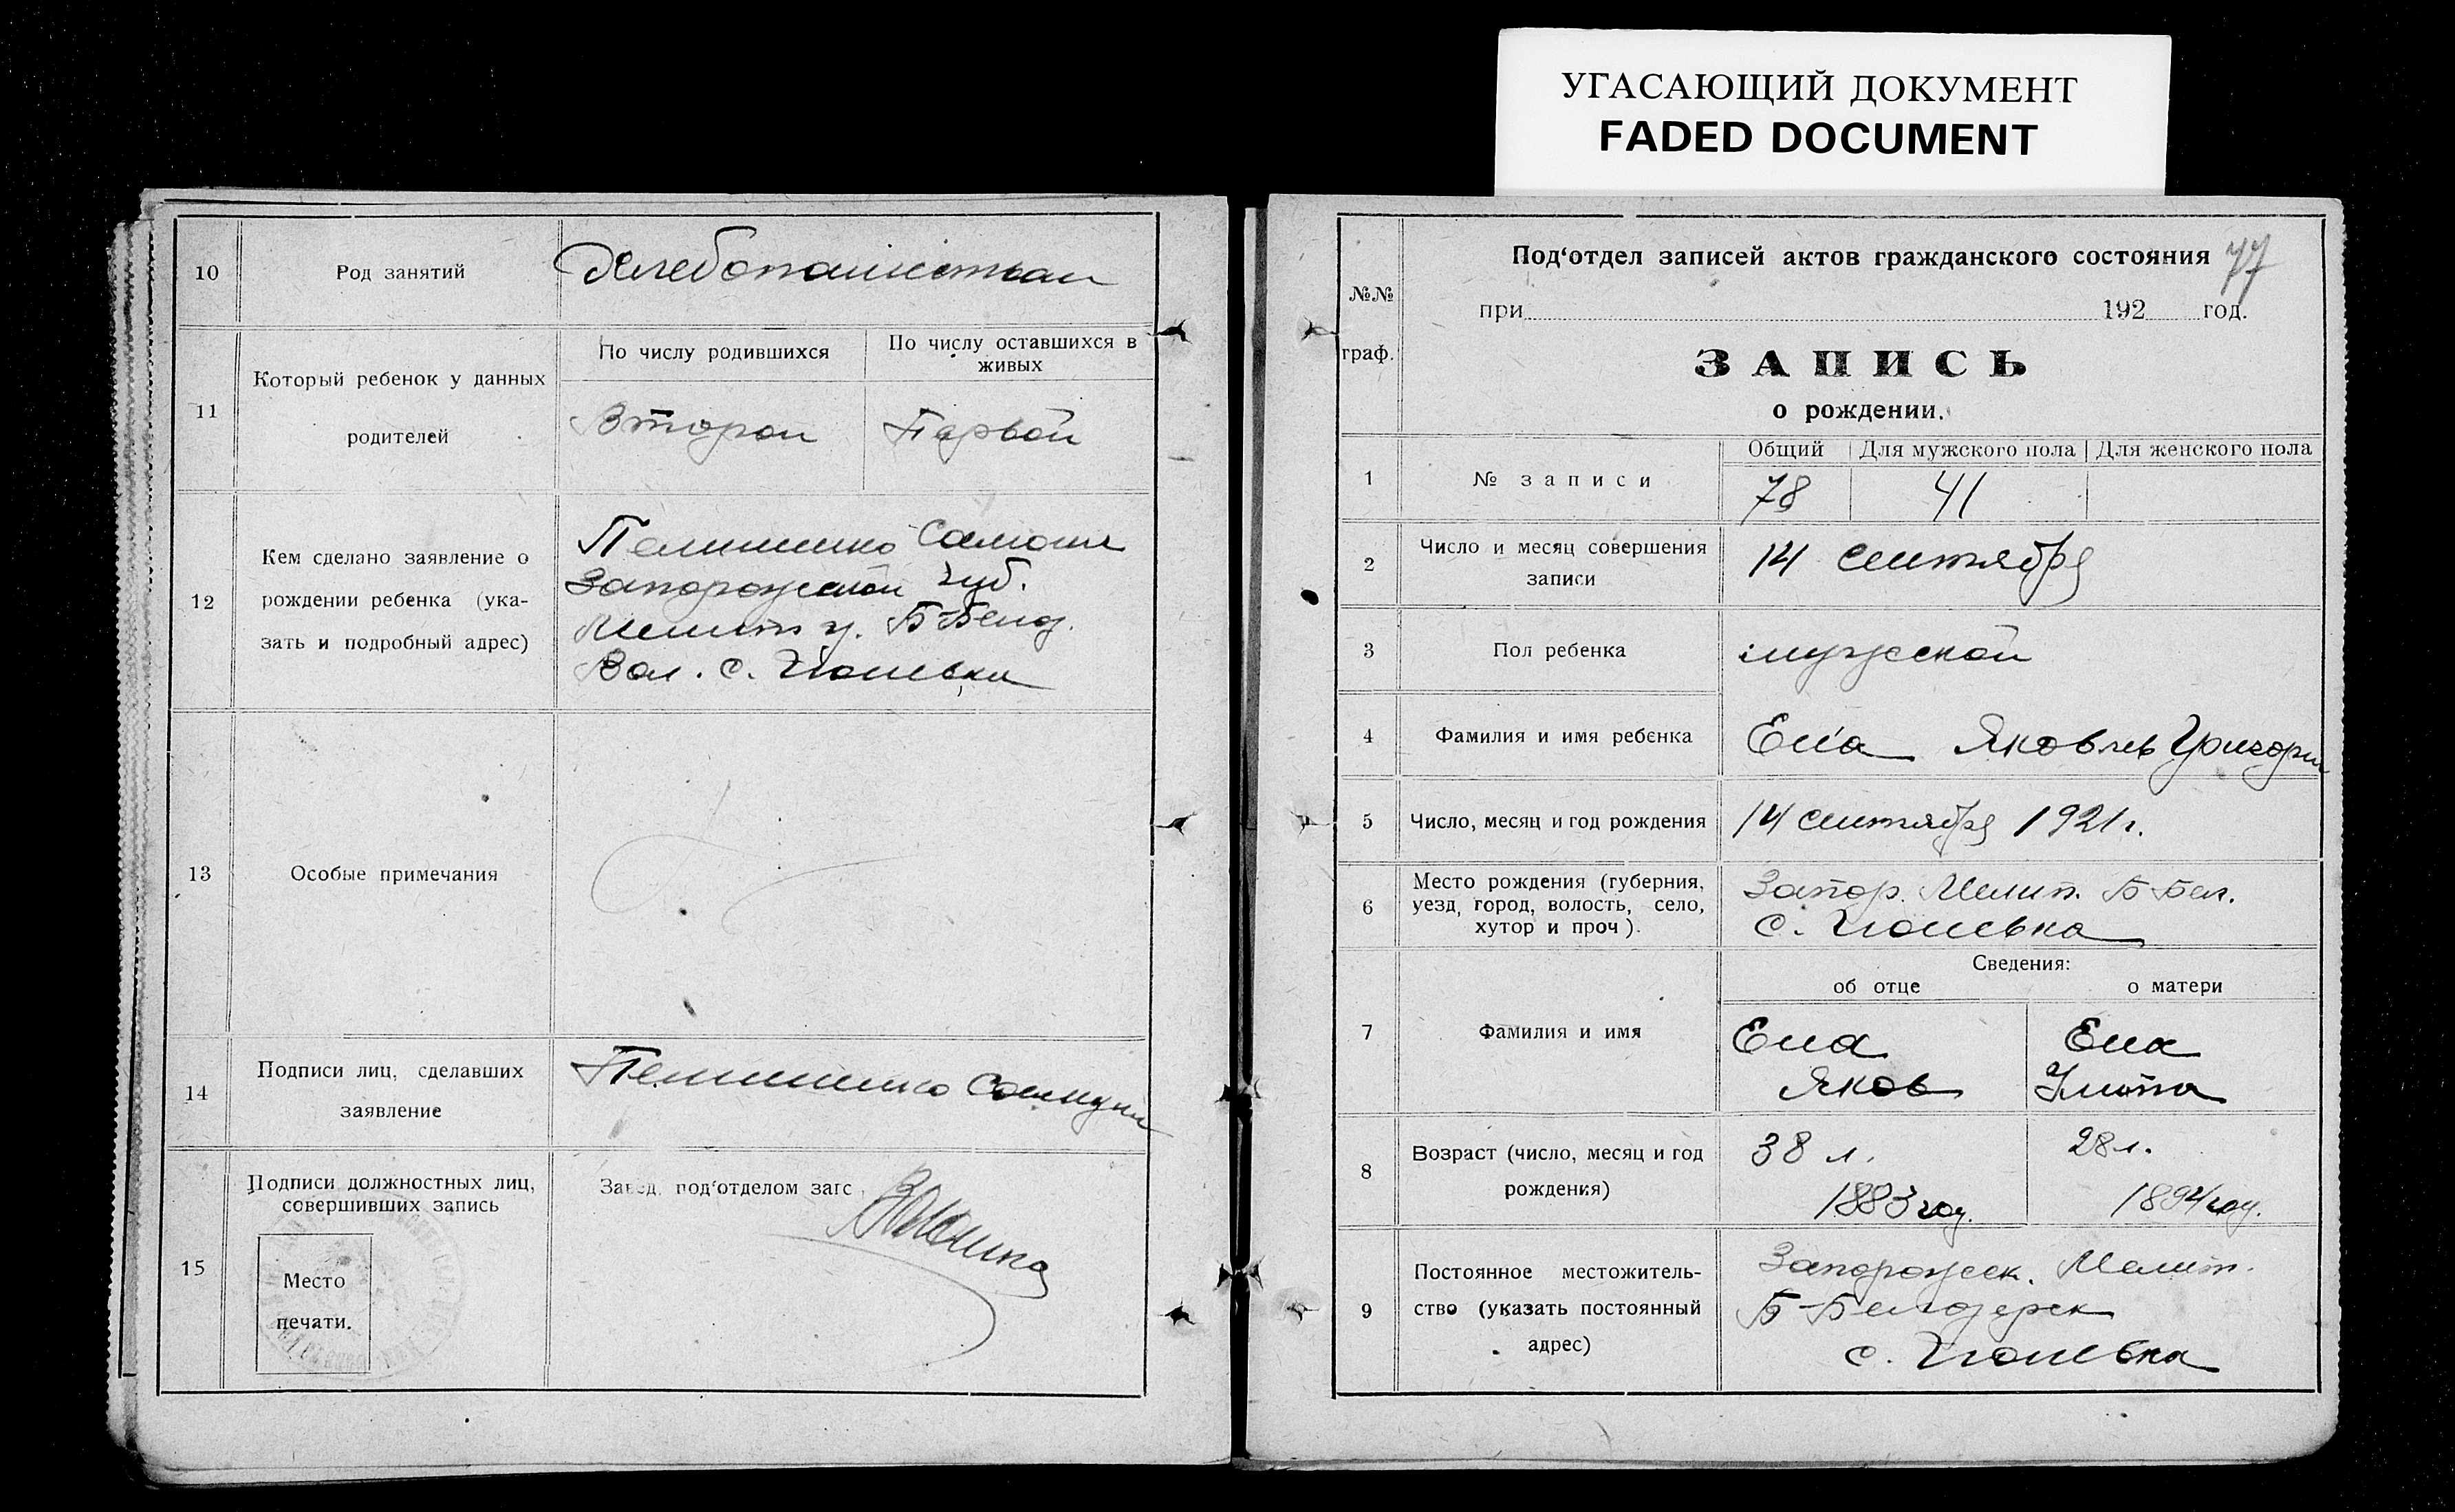 УГАСАЮЩИЙ ДОКУМЕНТ
FADED DOCUMENT
10
Род занятий
11
Который ребенок у данных
родителей
По числу родившихся
По числу оставшихся в
живых
Второй
Первой
12
Кем сделано заявление о
рождении ребенка (ука-
зать и подробный адрес)
Запорожской Губ.
Мелит у. Б-Белоз.
Вол. с. Гюневка
13
Особые примечания
14
Подписи лиц, сделавших
заявление
15
Подписи должностных лиц,
совершивших запись
Место
печати.
Завед. под‘отделом загс
№№
граф.
Под‘отдел записей актов гражданского состояния
77
при 192 год.
ЗАПИСЬ
о рождении.
1
№ записи
Общий
Для мужского пола
Для женского пола
78
41
2
Число и месяц совершения
записи
14 сентября
3
Пол ребенка
мужской
4
Фамилия и имя ребенка
Яковлев Григорий
5
Число, месяц и год рождения
14 сентября 1921 г.
6
Место рождения (губерния,
уезд, город, волость, село,
хутор и проч).
Запор. Мелит. Б-Бел.
с. Гюневка
Сведения:
об отце
о матери
7
Фамилия и имя
Яков
8
Возраст (число, месяц и год
рождения)
38 л.
1883 год.
28 л.
1894 год.
9
Постоянное местожитель-
ство (указать постоянный
адрес)
Запорожск. Мелит.
Б-Белозерск
с. Гюневка